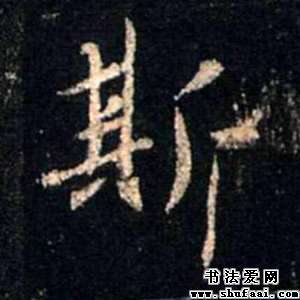 斯
书法爱网
www.shufaai.com